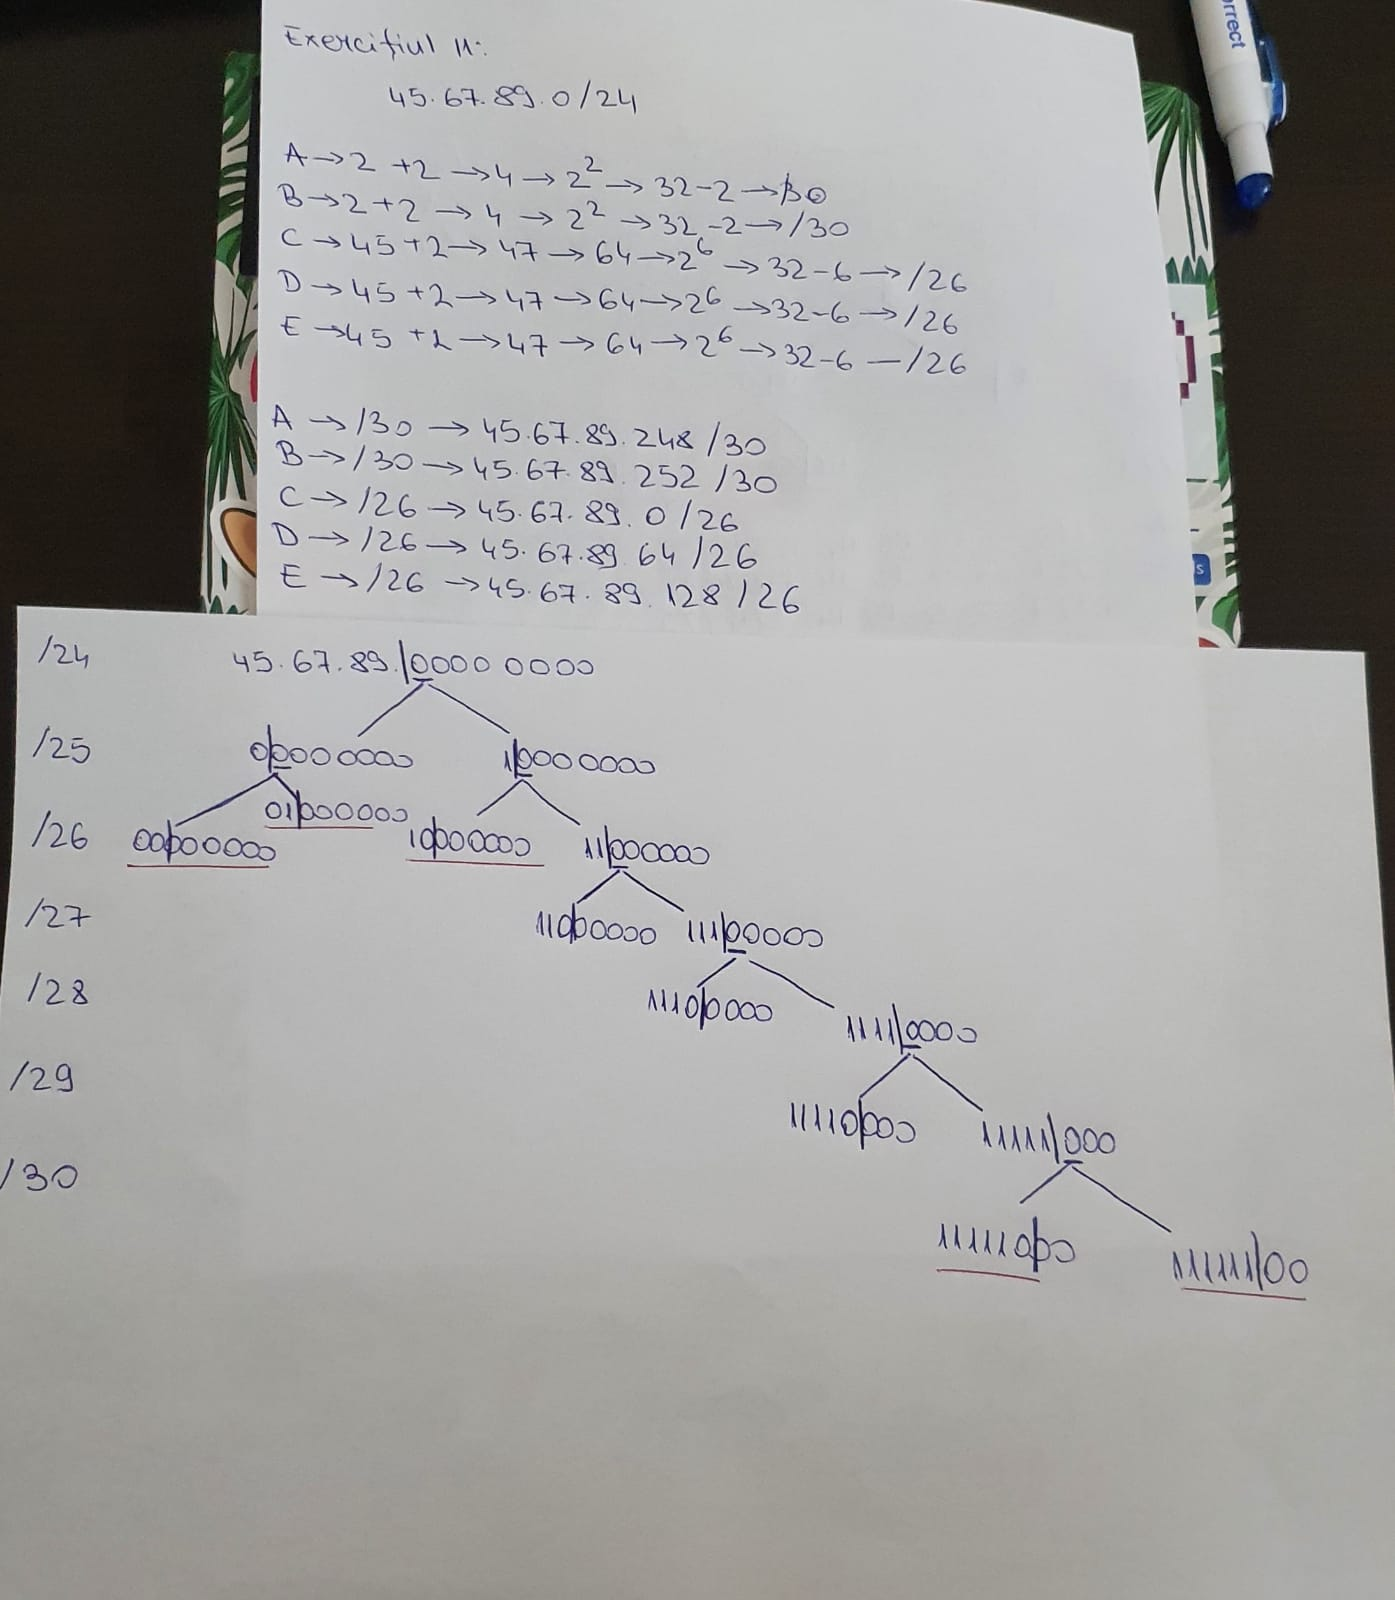 Exercițiul 11:
45.67.89.0/24
A→2 +2 →4→2²→32-2→/30
B→2+2→4→2²→32-2→/30
C→45+2→47→64→2⁶→32-6→/26
D→45+2→47→64→2⁶→32-6→/26
E→45+2→47→64→2⁶→32-6—/26
A→/30→45.67.89.248/30
B→/30→45.67.89.252/30
C→/26→45.67.89.0/26
D→/26→45.67.89.64/26
E→/26→45.67.89.128/26
/24 45.67.89.|0000 0000
/25 0|0000000 1|0000000
/26 00|000000 01|000000 10|000000 11|000000
/27 110|00000 111|00000
/28 1110|0000 1111|0000
/29 11110|000 11111|000
/30 111110|00 111111|00
orrect
s